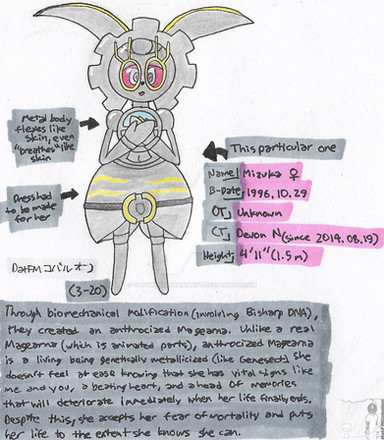 Metal body
flexes like
skin, even
"breathes" like
skin
This particular one
Name Mizuka ♀
B-Date 1996.10.29
OT Unknown
CT Devon N (since 2019.08.19)
Height 4'11" (1.5m)
Dress had
to be made
for her
DatFM コバルオン
(3-20)
Through biomechanical modification (involving Bisharp DNA),
they created an anthrocized Magearna. Unlike a real
Magearna (which is animated parts), anthrocized Magearna
is a living being genetically metallicized (like Genesect). She
doesn't feel at ease knowing that she has vital signs like
me and you, a beating heart, and ahead of memories
that will deteriorate immediately when her life finally ends.
Despite this, she accepts her fear of mortality and puts
her life to the extent she knows she can.